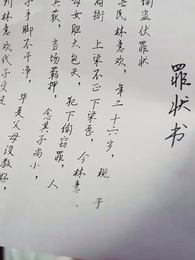 罪状书
偷盗伏罪状
民林意欢，年二十六岁，观于
府衙 上梁不正下梁歪，今林意
母女胆大包天，犯下偷窃罪，人
其获，当场羁押，念其子尚小，
手脚不干净，毕是父母没教好，
林意欢代子受过